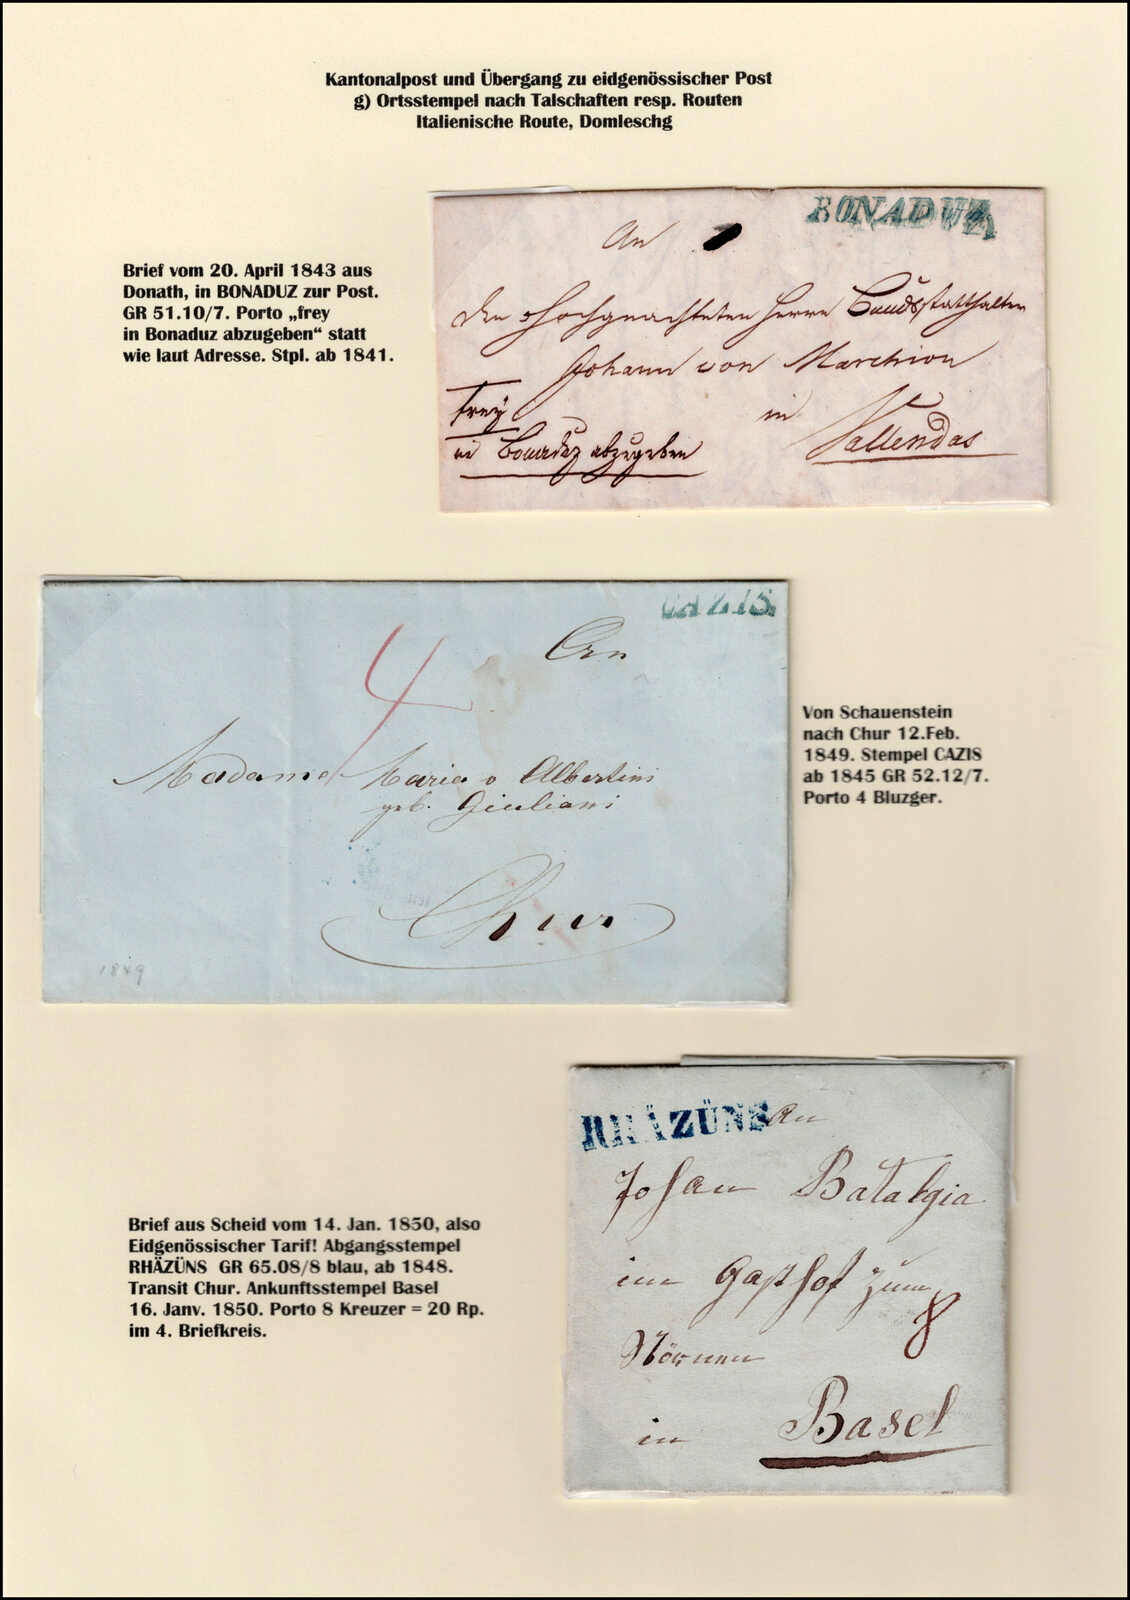 Kantonalpost und Übergang zu eidgenössischer Post
g) Ortsstempel nach Talschaften resp. Routen
Italienische Route, Domleschg
Brief vom 20. April 1843 aus
Donath, in BONADUZ zur Post.
GR 51.10/7. Porto „frey
in Bonaduz abzugeben“ statt
wie laut Adresse. Stpl. ab 1841.
BONADUZ
An
den Hochgeachteten Herrn Bundsstatthalter
Johann von Marchion
in Vallendas
frey
in Bonaduz abzugeben
CAZIS.
4
An
Madame Maria v Albertini
geb. Giuliani
Chur
1849
Von Schauenstein
nach Chur 12.Feb.
1849. Stempel CAZIS
ab 1845 GR 52.12/7.
Porto 4 Bluzger.
Brief aus Scheid vom 14. Jan. 1850, also
Eidgenössischer Tarif! Abgangsstempel
RHÄZÜNS GR 65.08/8 blau, ab 1848.
Transit Chur. Ankunftsstempel Basel
16. Janv. 1850. Porto 8 Kreuzer = 20 Rp.
im 4. Briefkreis.
RHÄZÜNS
An
Johan Batalgia
im Gasthof zum
8
in Basel